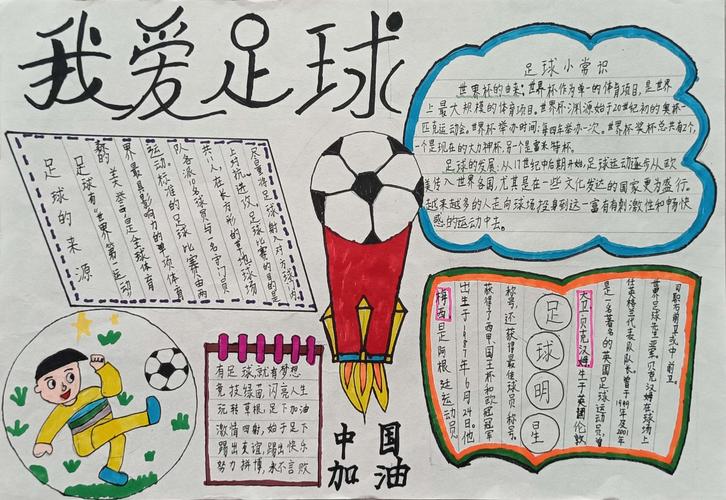 我爱足球
足球的来源
足球有“世界第一运动”
的美誉,是全球体育
界最具影响力的单项体育
运动。标准的足球比赛由两
队各派10名球员与一名守门员
共11人,在长方形的草地球场
上对抗、进攻。足球比赛的目的是
尽量将足球射入对方球门内,
足球小常识
世界杯的由来:世界杯作为单一的体育项目,是世界
上最大规模的体育项目。世界杯渊源始于20世纪初的奥林
匹克运动会。世界杯举办时间:每四年举办一次。世界杯奖杯总共有2个,
一个是现在的大力神杯,另一个是雷米特杯。
足球的发展:从17世纪中后期开始,足球运动逐步从欧
美传入世界各国,尤其是在一些文化发达的国家更为盛行。
越来越多的人走向球场投身到这一富有刺激性和畅快
感的运动中去。
有足球,就有梦想
竞技绿茵,闪亮人生
玩转草根,足下加油
激情四射,始于足下
踢出友谊,踢出快乐
努力拼搏,永不言败
中国
加油
梅西是阿根廷运动员
出生于1987年6月24日。他
获得了西甲、国王杯和欧冠冠军
称号,还获得最佳球员称号。
足球明星
大卫·贝克汉姆生于英国伦敦
是一名著名的英国足球运动员,曾
任英格兰代表队队长,曾于1999年及2001年
世界足球先生亚军。贝克汉姆在球场上
司职右前卫或中前卫。